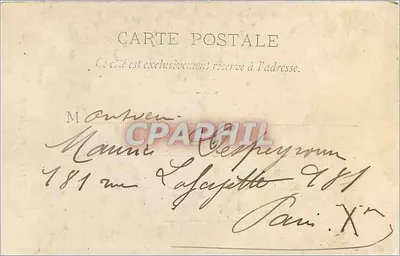 CARTE POSTALE
Ce côté est exclusivement réservé à l'adresse.
Monsieur
CPAPHIL
Maurice Despeyroux
181 rue Lafayette 181
Paris. Xe